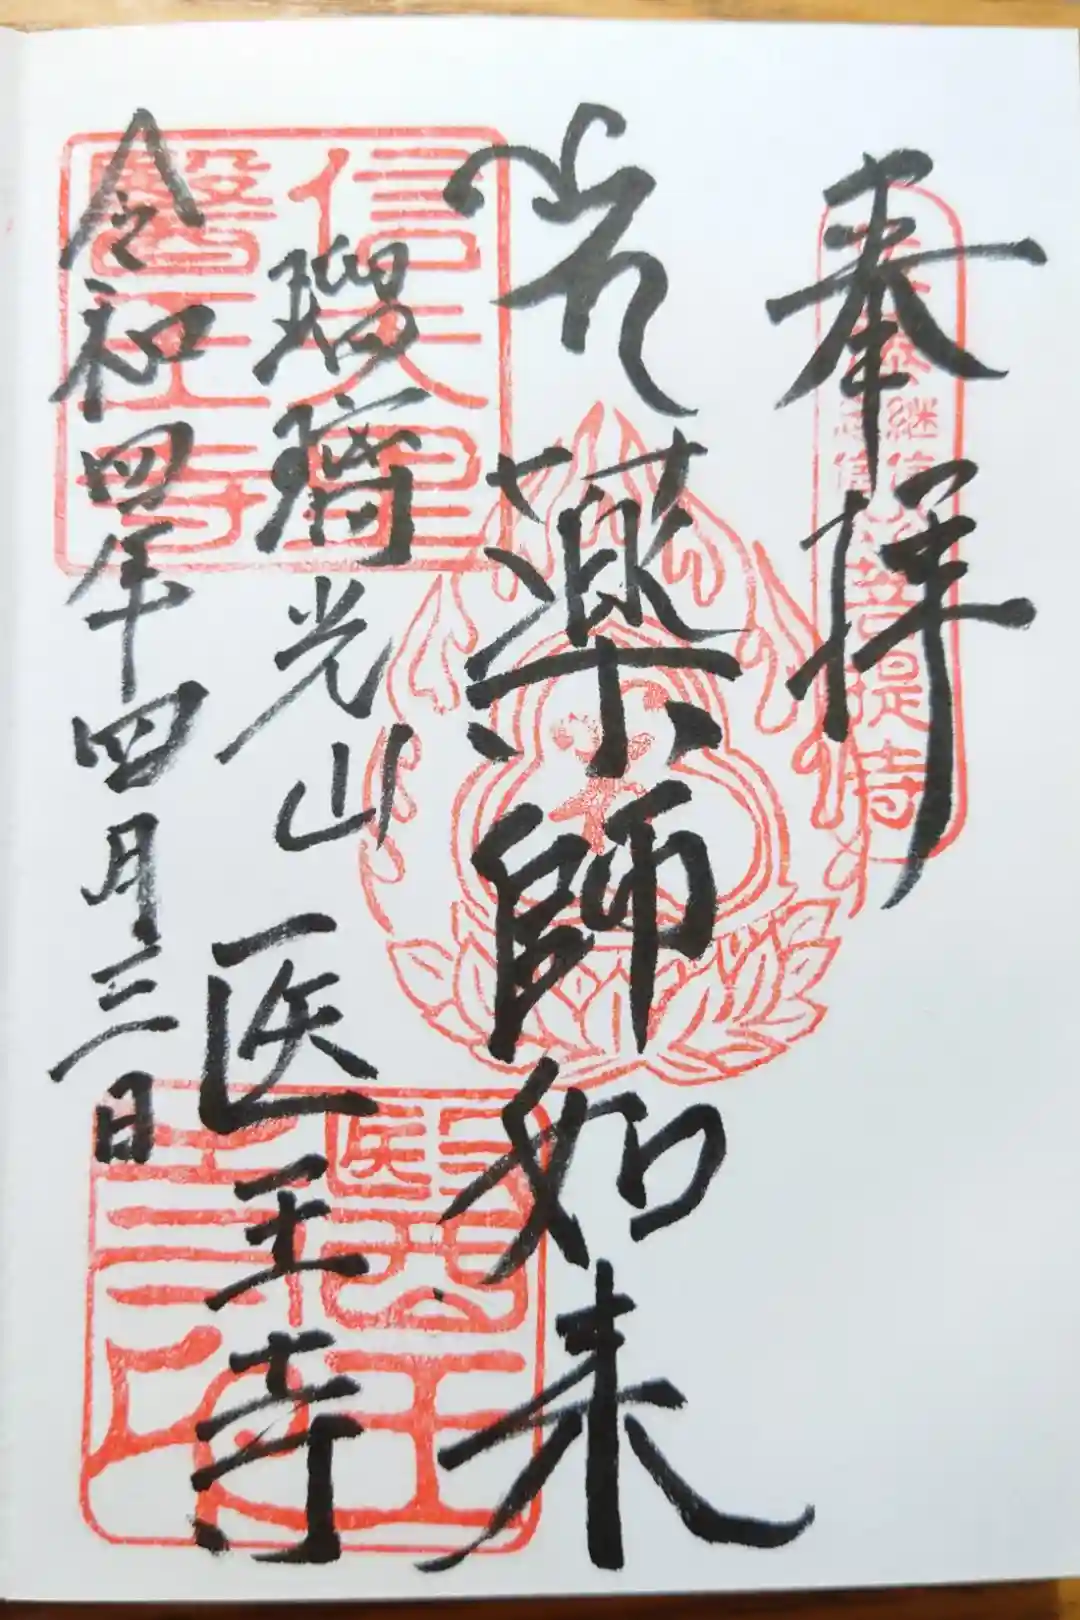 奉拝
継信
忠信
菩提寺
薬師如来
瑠璃光山 医王寺
信夫里
醫王寺
令和四年四月三日